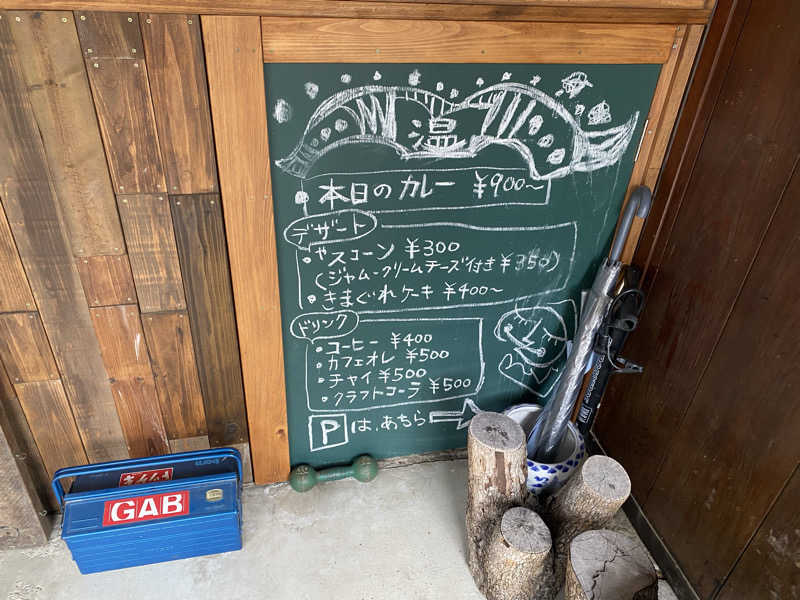 温
本日のカレー ¥900〜
デザート
やスコーン ¥300
(ジャム・クリームチーズ付き ¥350)
きまぐれケーキ ¥400〜
ドリンク
コーヒー ¥400
カフェオレ ¥500
チャイ ¥500
クラフトコーラ ¥500
P は、あちら
GAB